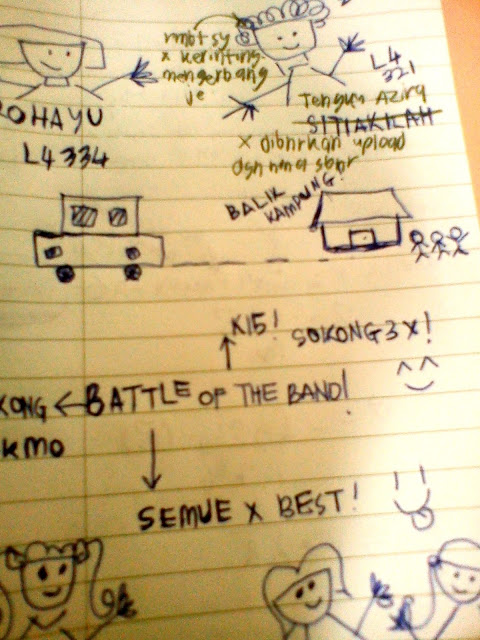 rmbt sy
x kerinting.
mengerbang
je
L4
321
OHAYU
L4 334
Tengku Azira
SITI AKILAH
x dibnrkan upload
dgn nama sbnr
BALIK
KAMPUNG!
K15!
SOKONG 3X!
KONG ← BATTLE OF THE BAND!
KMO
SEMUE X BEST!